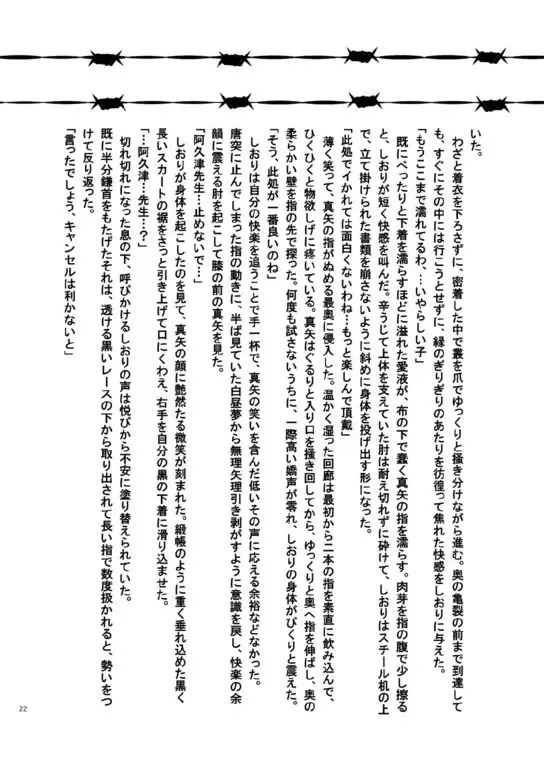 いた。
わざと着衣を下ろさずに、密着した中で叢を爪でゆっくりと掻き分けながら進む。奥の亀裂の前まで到達して
も、すぐにその中には行こうとせずに、縁のぎりぎりのあたりを彷徨って焦れた快感をしおりに与えた。
「もうここまで濡れてるわ…いやらしい子」
既にべったりと下着を濡らすほどに溢れた愛液が、布の下で蠢く真矢の指を濡らす。肉芽を指の腹で少し擦る
と、しおりが短く快感を叫んだ。辛うじて上体を支えていた肘は耐え切れずに砕けて、しおりはスチール机の上
で、立て掛けられた書類を崩さないように斜めに身体を投げ出す形になった。
「此処でイかれては面白くないわね…もっと楽しんで頂戴」
薄く笑って、真矢の指がぬめる最奥に侵入した。温かく湿った回廊は最初から二本の指を素直に飲み込んで、
ひくひくと物欲しげに疼いている。真矢はぐるりと入り口を掻き回してから、ゆっくりと奥へ指を伸ばし、奥の
柔らかい壁を指の先で探った。何度も試さないうちに、一際高い嬌声が零れ、しおりの身体がびくりと震えた。
「そう、此処が一番良いのね」
しおりは自分の快楽を追うことで手一杯で、真矢の笑いを含んだ低いその声に応える余裕などなかった。
唐突に止んでしまった指の動きに、半ば見ていた白昼夢から無理矢理引き剥がすように意識を戻し、快楽の余
韻に震える肘を起こして膝の前の真矢を見た。
「阿久津先生…止めないで…」
しおりが身体を起こしたのを見て、真矢の顔に艶然たる微笑が刻まれた。緞帳のように重く垂れ込めた黒く
長いスカートの裾をさっと引き上げて口にくわえ、右手を自分の黒の下着に滑り込ませた。
「…阿久津…先生…？」
切れ切れになった息の下、呼びかけるしおりの声は悦びから不安に塗り替えられていた。
既に半分鎌首をもたげたそれは、透ける黒いレースの下から取り出されて長い指で数度扱かれると、勢いをつ
けて反り返った。
「言ったでしょう、キャンセルは利かないと」
22